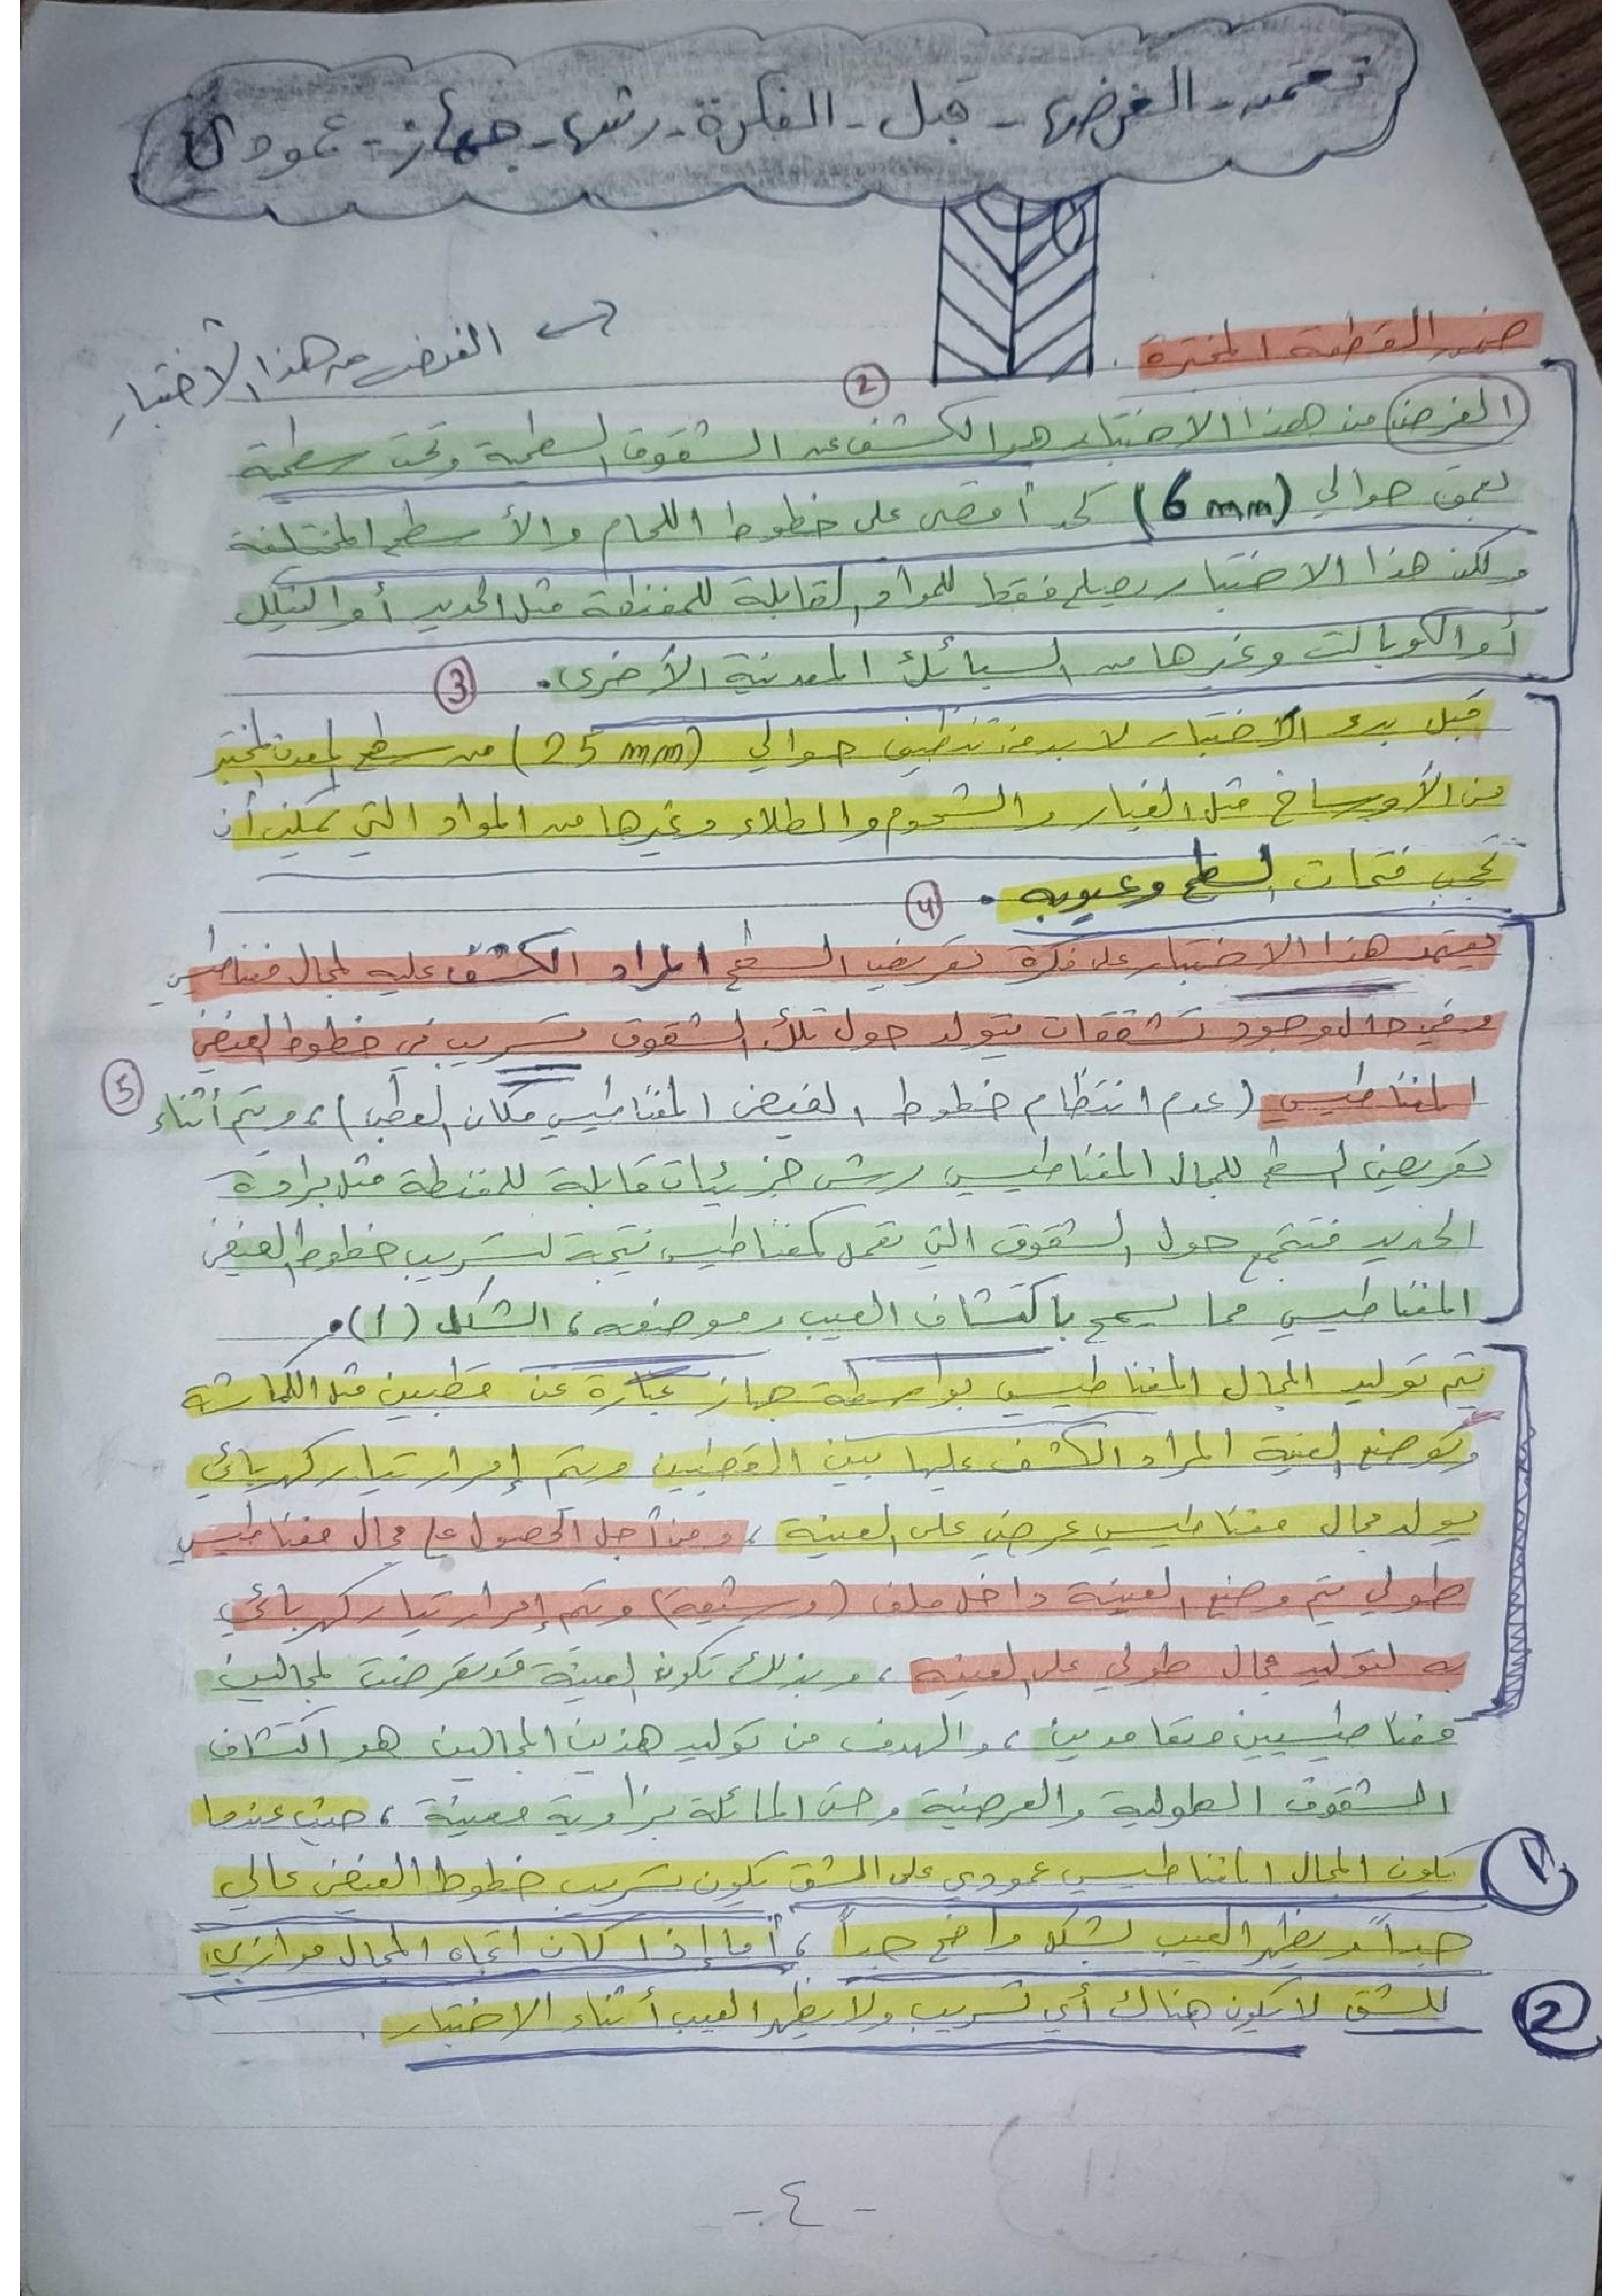 تعتمد - الغرض - قبل - الفكرة - رش - جهاز - عمودي
ضمن القطعة المختبرة .
الغرض من هذا الاختبار
②
الغرض من هذا الاختبار هو الكشف عن الشقوق السطحية وتحت سطحية
بعمق حوالي (6 mm) كحد أقصى على خطوط اللحام والأسطح المختلفة
ولكن هذا الاختبار يصلح فقط للمواد القابلة للمغنطة مثل الحديد أو النيكل
أو الكوبالت وغيرها من السبائك المعدنية الأخرى .
③
قبل بدء الاختبار لا بد من تنظيف حوالي (25 mm) من سطح المعدن المختبر
من الأوساخ مثل الغبار والشحوم والطلاء وغيرها من المواد التي يمكن أن
تحجب فتحات السطح وعيوبه .
④
يعتمد هذا الاختبار على فكرة تعريض السطح المراد الكشف عليه لمجال مغناطيسي
وفي حال وجود تشققات يتولد حول تلك الشقوق تسريب في خطوط الفيض
المغناطيسي (عدم انتظام خطوط الفيض المغناطيسي مكان العطب) ، ويتم أثناء
⑤
تعريض السطح للمجال المغناطيسي رش جزيئات قابلة للمغنطة مثل برادة
الحديد فتتجمع حول الشقوق التي تعمل كمغناطيس نتيجة لتسريب خطوط الفيض
المغناطيسي مما يسمح باكتشاف العيب وموضعه ، الشكل (1) .
يتم توليد المجال المغناطيسي بواسطة جهاز عبارة عن قطبين مثل الكماشة
وتوضع العينة المراد الكشف عليها بين القطبين ويتم إمرار تيار كهربائي
يولد مجال مغناطيسي عرضي على العينة ، ومن أجل الحصول على مجال مغناطيسي
طولي يتم وضع العينة داخل ملف (وشيعة) ويتم إمرار تيار كهربائي
به لتوليد مجال طولي على العينة ، وبذلك تكون العينة قد تعرضت لمجالين
مغناطيسيين متعامدين ، والهدف من توليد هذين المجالين هو اكتشاف
الشقوق الطولية والعرضية وحتى المائلة بزاوية معينة ، حيث عندما
يكون المجال المغناطيسي عمودي على الشق يكون تسريب خطوط الفيض عالي
①
جداً ويظهر العيب بشكل واضح جداً ، أما إذا كان اتجاه المجال موازي
للشق لا يكون هناك أي تسريب ولا يظهر العيب أثناء الاختبار .
②
- ٤ -